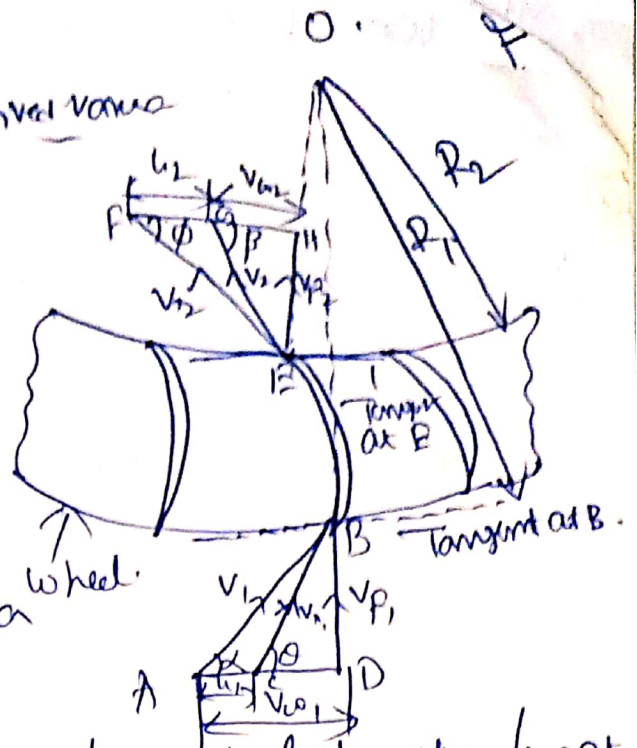 O.
R2
R1
u2
Vw2
F
G
H
φ
β
Vr2
V2
Vf2
E
Tangent
at E
B
Tangent at B.
wheel.
a
V1
Vr1
Vf1
α
θ
A
u1
C
D
Vw1